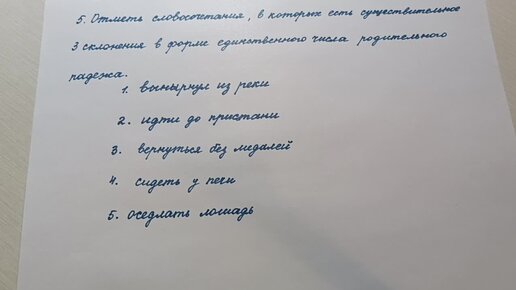 5. Отметь словосочетания, в которых есть существительное
3 склонения в форме единственного числа родительного
падежа.
1. вынырнул из реки
2. идти до пристани
3. вернуться без медалей
4. сидеть у печи
5. оседлать лошадь